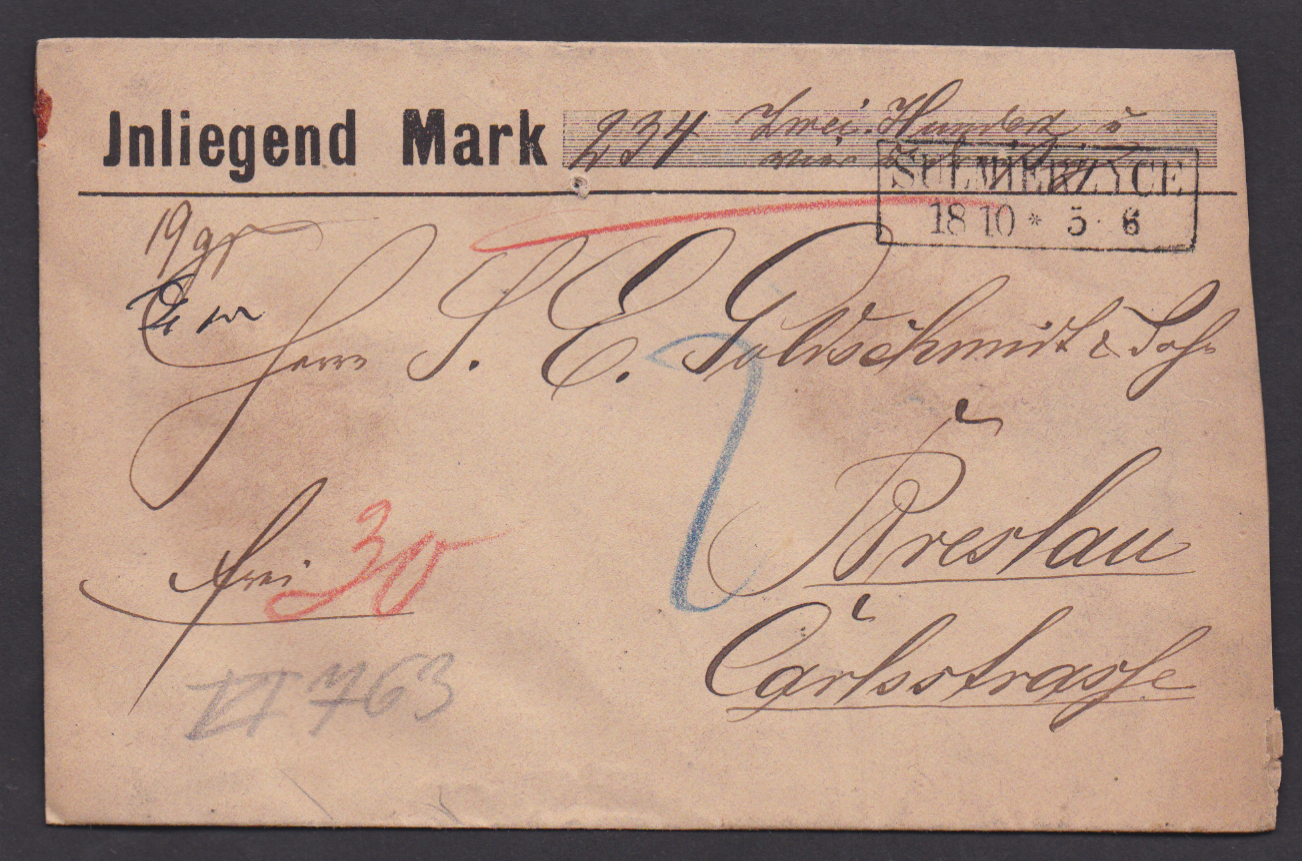 Jnliegend Mark 234 Zwei Hundert u
vier
SULMIERZYCE
18 10 * 5-6
19 gr
Herrn S. E. Goldschmidt & Sohn
Breslau
Carlsstrasse
frei 30
VI 763